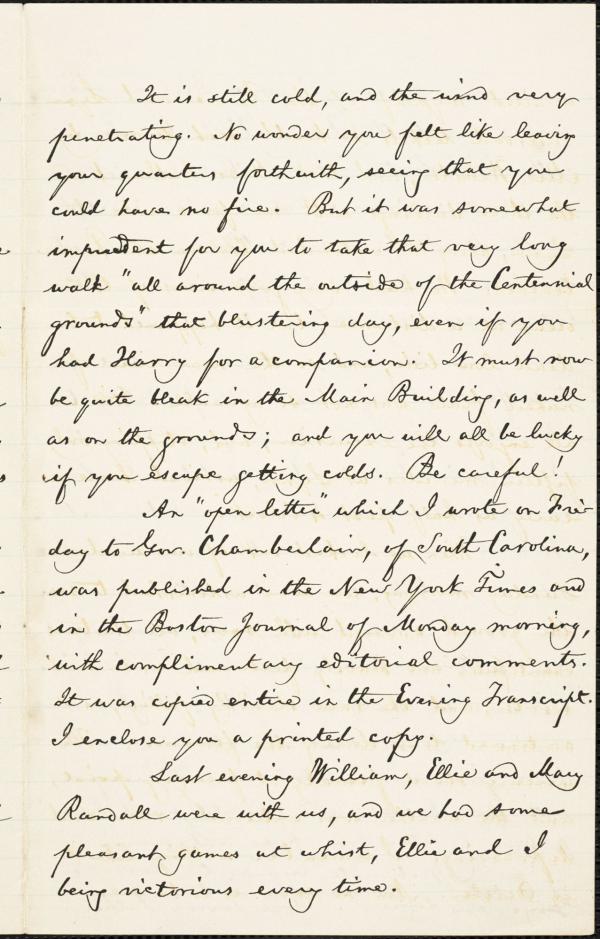 It is still cold, and the wind very
penetrating. No wonder you felt like leaving
your quarters forthwith, seeing that you
could have no fire. But it was somewhat
imprudent for you to take that very long
walk "all around the outside of the Centennial
grounds" that blustering day, even if you
had Harry for a companion. It must now
be quite bleak in the Main Building, as well
as on the grounds; and you will all be lucky
if you escape getting colds. Be careful!
An "open letter" which I wrote on Fri-
day to Gov. Chamberlain, of South Carolina,
was published in the New York Times and
in the Boston Journal of Monday morning,
with complimentary editorial comments.
It was copied entire in the Evening Transcript.
I enclose you a printed copy.
Last evening William, Ellie and Mary
Randall were with us, and we had some
pleasant games at whist, Ellie and I
being victorious every time.